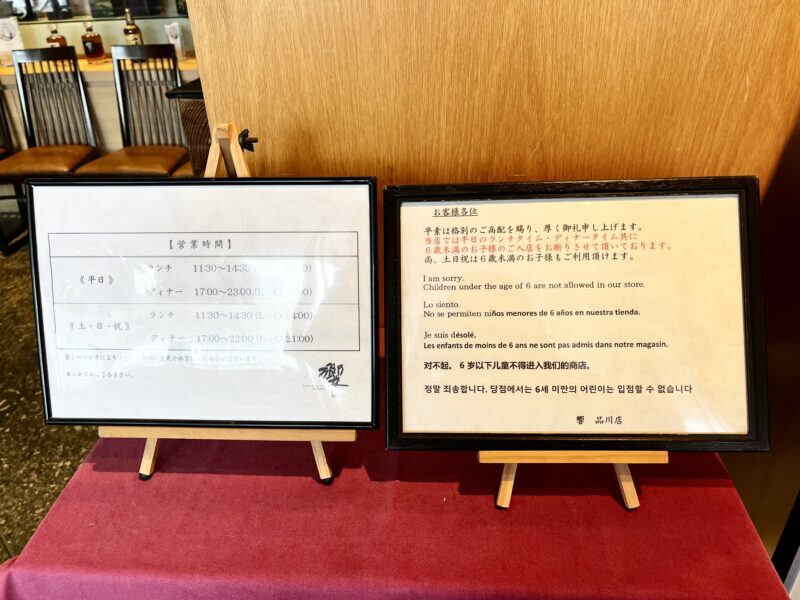 【営業時間】
《平日》
ランチ 11:30〜14:30
ディナー 17:00〜23:00
《土・日・祝》
ランチ 11:30〜14:30
ディナー 17:00〜22:00 21:00)
あらかじめご了承下さい。
響
お客様各位
平素は格別のご高配を賜り、厚く御礼申し上げます。
当店では平日のランチタイム・ディナータイム共に
6歳未満のお子様のご入店をお断りさせて頂いております。
尚、土日祝は6歳未満のお子様もご利用頂けます。
I am sorry.
Children under the age of 6 are not allowed in our store.
Lo siento.
No se permiten niños menores de 6 años en nuestra tienda.
Je suis désolé.
Les enfants de moins de 6 ans ne sont pas admis dans notre magasin.
对不起。 6 岁以下儿童不得进入我们的商店。
정말 죄송합니다. 당점에서는 6세 미만의 어린이는 입점할 수 없습니다
響 品川店